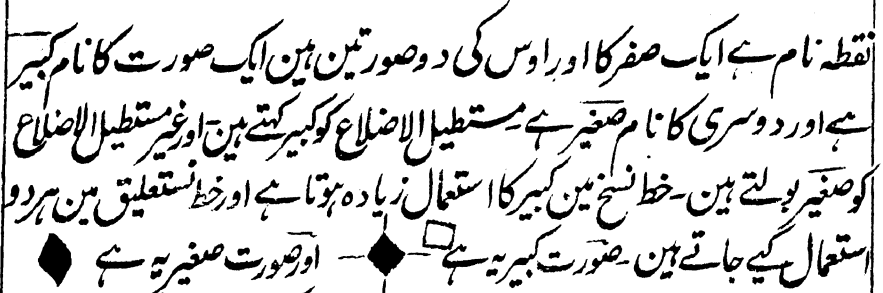 نقطہ نام ہے ایک صفر کا اور اوس کی دو صورتین ہین ایک صورت کا نام کبیر
ہے اور دوسری کا نام صغیر ہے۔ مستطیل الاضلاع کو کبیر کہتے ہین۔ اور غیر مستطیل الاضلاع
کو صغیر بولتے ہین۔ خط نسخ مین کبیر کا استعمال زیادہ ہوتا ہے اور خط نستعلیق مین ہر دو
استعمال کیے جاتے ہین۔ صورت کبیر یہ ہے اور صورت صغیر یہ ہے